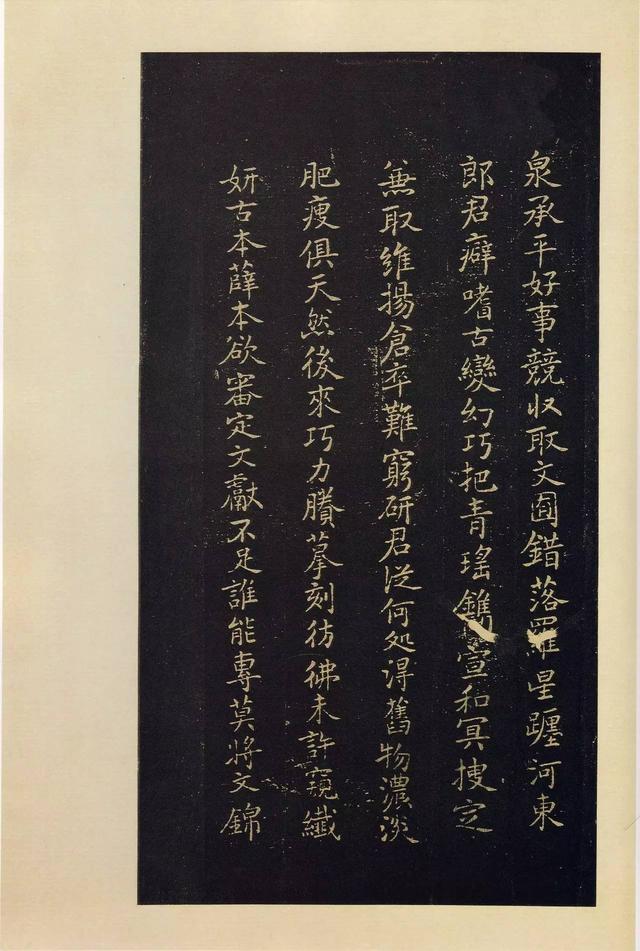 泉承平好事競収取文囿錯落羅星躔河東
郎君癖嗜古變幻巧把青瑤鐫宣和冥搜定
無取維揚倉卒難窮研君從何処得舊物濃淡
肥瘦俱天然後來巧力賸摹刻彷彿未許窺纖
妍古本薛本欲審定文獻不足誰能專莫將文錦